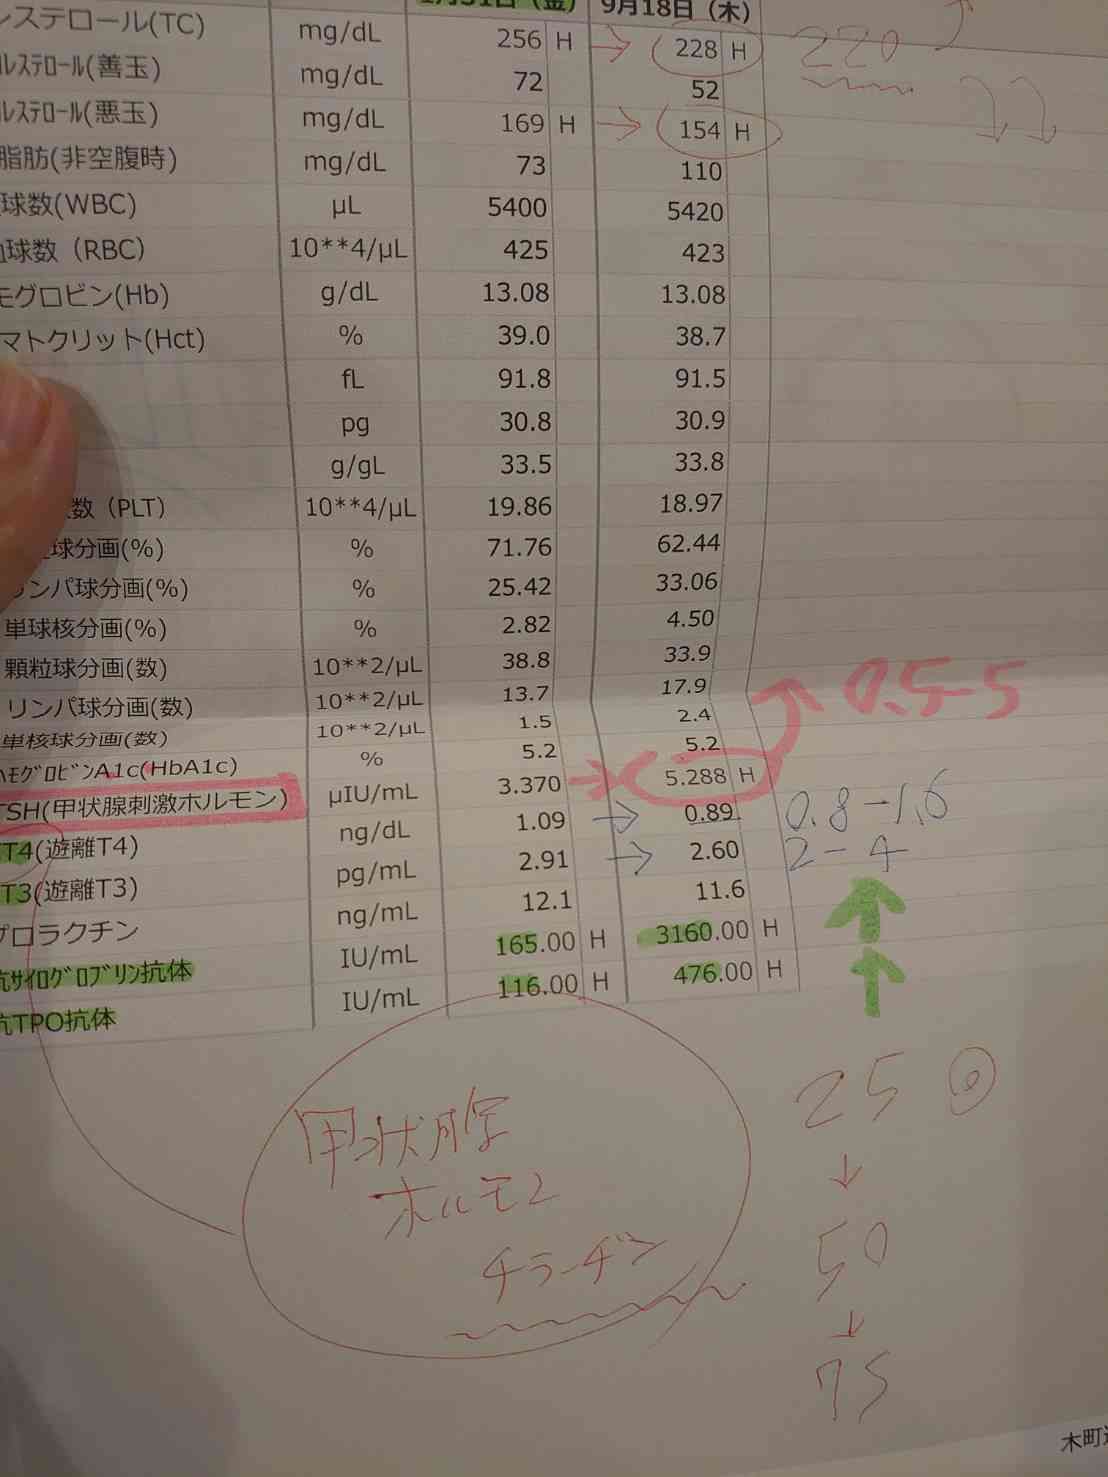 9月18日（木）
ステロール(TC) mg/dL 256 H → 228 H 220
ﾚｽﾃﾛｰﾙ(善玉) mg/dL 72 52
ﾚｽﾃﾛｰﾙ(悪玉) mg/dL 169 H → 154 H
脂肪(非空腹時) mg/dL 73 110
球数(WBC) μL 5400 5420
球数（RBC） 10**4/μL 425 423
モグロビン(Hb) g/dL 13.08 13.08
マトクリット(Hct) % 39.0 38.7
fL 91.8 91.5
pg 30.8 30.9
g/gL 33.5 33.8
数（PLT） 10**4/μL 19.86 18.97
球分画(%) % 71.76 62.44
リンパ球分画(%) % 25.42 33.06
単球核分画(%) % 2.82 4.50
顆粒球分画(数) 10**2/μL 38.8 33.9
リンパ球分画(数) 10**2/μL 13.7 17.9 0.5-5
単核球分画(数) 10**2/μL 1.5 2.4
ﾍﾓｸﾞﾛﾋﾞﾝA1c(HbA1c) % 5.2 5.2
TSH(甲状腺刺激ホルモン) μIU/mL 3.370 → 5.288 H
T4(遊離T4) ng/dL 1.09 → 0.89 0.8-1.6
T3(遊離T3) pg/mL 2.91 → 2.60 2-4
プロラクチン ng/mL 12.1 11.6
抗ｻｲﾛｸﾞﾛﾌﾞﾘﾝ抗体 IU/mL 165.00 H 3160.00 H
抗TPO抗体 IU/mL 116.00 H 476.00 H
甲状腺
ホルモン
チラーヂン
25
↓
50
↓
75
木町